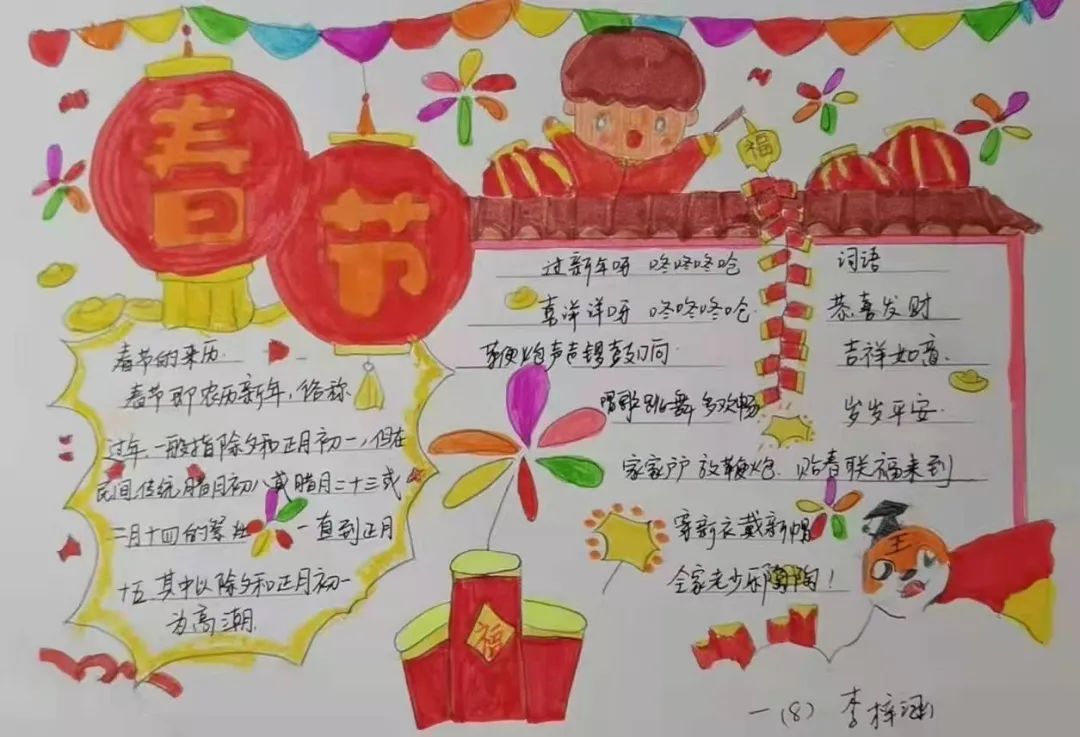 春节
福
春节的来历
春节即农历新年，俗称
过年，一般指除夕和正月初一，但在
民间传统腊月初八或腊月二十三或
二月十四的祭灶 一直到正月
十五，其中以除夕和正月初一
为高潮
过新年呀 咚咚咚呛
喜洋洋呀 咚咚咚呛
鞭炮声声锣鼓响
唱歌跳舞多欢畅
家家户户放鞭炮 贴春联福来到
穿新衣戴新帽
全家老少乐陶陶！
词语
恭喜发财
吉祥如意
岁岁平安
福
王
一（8） 李梓涵